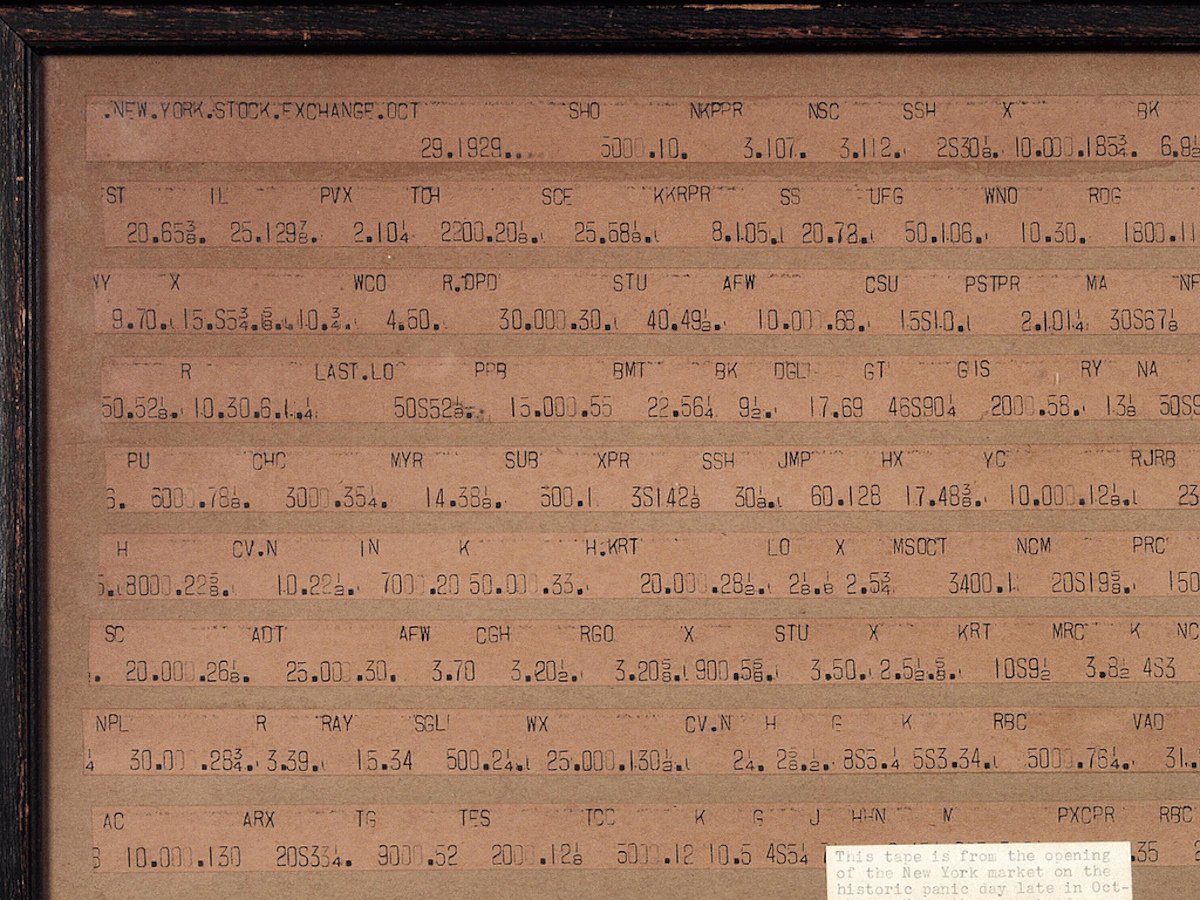 .NEW.YORK.STOCK.EXCHANGE.OCT SHO NKPPR NSC SSH X BK
29.1929.. 5000.10. 3.107. 3.112. 2S30⅛. 10.000.185¾. 6.9½
ST IL PVX TCH SCE KKRPR SS UFG WNO RDG
20.65⅜. 25.129⅞. 2.10¼ 2200.20⅛. 25.68⅛. 8.105. 20.72. 50.106. 10.30. 1800.11
X WCO R.DPD STU AFW CSU PSTPR MA
9.70. 4.50. 30.000.30. 40.49½. 10.000.68. 15S10. 2.101¼ 30S67⅛
R LAST.LO PPB BMT BK DGL GT GIS RY NA
50.52⅛. 50S52½. 15.000.55 22.56¼ 9½. 17.69 46S90¼ 2000.58. 13⅛
PU CHC MYR SUB XPR SSH JMP HX YC RJRB
6000.78⅛. 3000.35¼. 14.38⅛. 500.1 3S142⅛ 30⅛. 60.128 17.48⅜. 10.000.12⅛. 23
H CV.N IN K H.KRT LO X MSOCT NCM PRC
8000.22⅝. 10.22½. 7000.20 50.000.33. 20.000.28½. 2⅛.⅛ 2.5¾ 3400.1 20S19⅝. 150
SC ADT AFW CGH RGO X STU X KRT MRC K NC
20.000.26⅛. 25.000.30. 3.70 3.20½. 3.20⅝. 900.5⅝. 3.50. 2.5½.⅝. 10S9½ 3.8½ 4S3
NPL R RAY SGL WX CV.N H G K RBC VAD
¼ 30.000.28¾. 3.39. 15.34 500.24. 25.000.130½. 2¼. 2⅝.½. 8S5.¼ 5S3.34. 5000.76¼. 31.
AC ARX TG TES TCC K G J HHN M PXCPR RBC
10.000.130 20S33¼. 9000.52 2000.12⅛ 5000.12 10.5 4S5¼ .35
This tape is from the opening
of the New York market on the
historic panic day late in Oct-